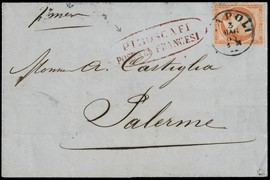 PIROSCAFI
POSTALI FRANCESI
NAPOLI
Monsr A. Castiglia
Palerme